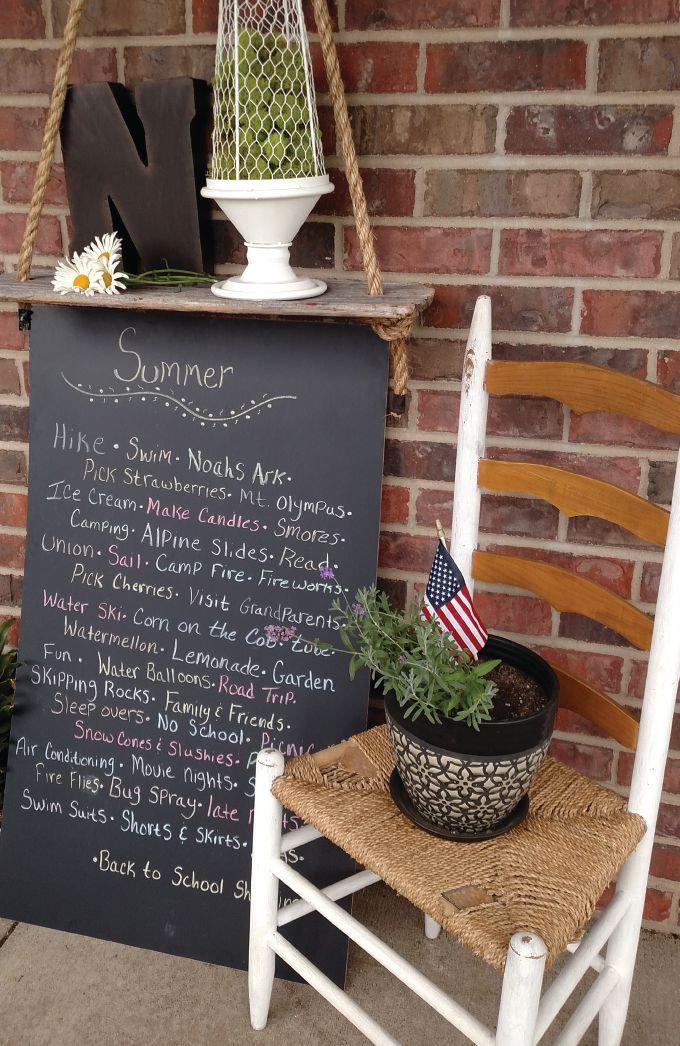 N
Summer
Hike · Swim · Noahs Ark ·
Pick Strawberries · Mt. Olympus ·
Ice Cream · Make Candles · Smores ·
Camping · Alpine Slides · Read ·
Union · Sail · Camp Fire · Fireworks ·
Pick Cherries · Visit Grandparents
Water Ski · Corn on the Cob ·
Watermellon · Lemonade · Garden
Fun · Water Balloons · Road Trip ·
Skipping Rocks · Family & Friends ·
Sleep overs · No School · Picnic
Snow Cones & Slushies ·
Air Conditioning · Movie nights ·
Fire Flies · Bug Spray · late
Swim Suits · Shorts & Skirts ·
· Back to School